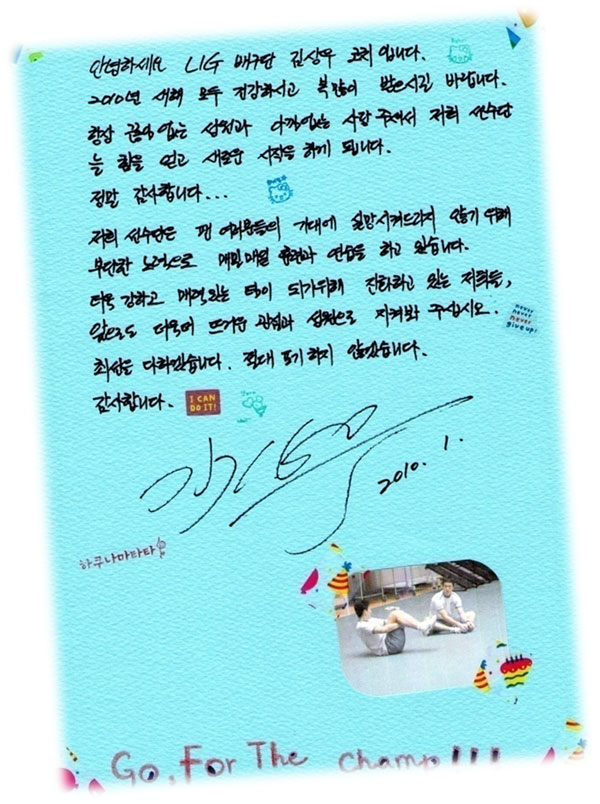 안녕하세요 LIG 배구단 김상우 코치입니다.
2010년 새해 모두 건강하시고 복많이 받으시길 바랍니다.
항상 끊임없는 성원과 아낌없는 사랑 주셔서 저희 선수단
늘 힘을 얻고 새로운 시작을 하게 됩니다.
정말 감사합니다...
저희 선수단은 팬 여러분들의 기대에 실망시켜드리지 않기 위해
부단한 노력으로 매일매일 훈련과 연습을 하고 있습니다.
더욱 강하고 매력있는 팀이 되기위해 진화하고 있는 저희들,
앞으로도 더욱더 뜨거운 관심과 성원으로 지켜봐 주십시오.
never
never
never
give up!
최선을 다하겠습니다. 절대 포기하지 않겠습니다.
감사합니다.
I CAN
DO IT!
2010. 1.
하쿠나마타타
Go. For The champ!!!